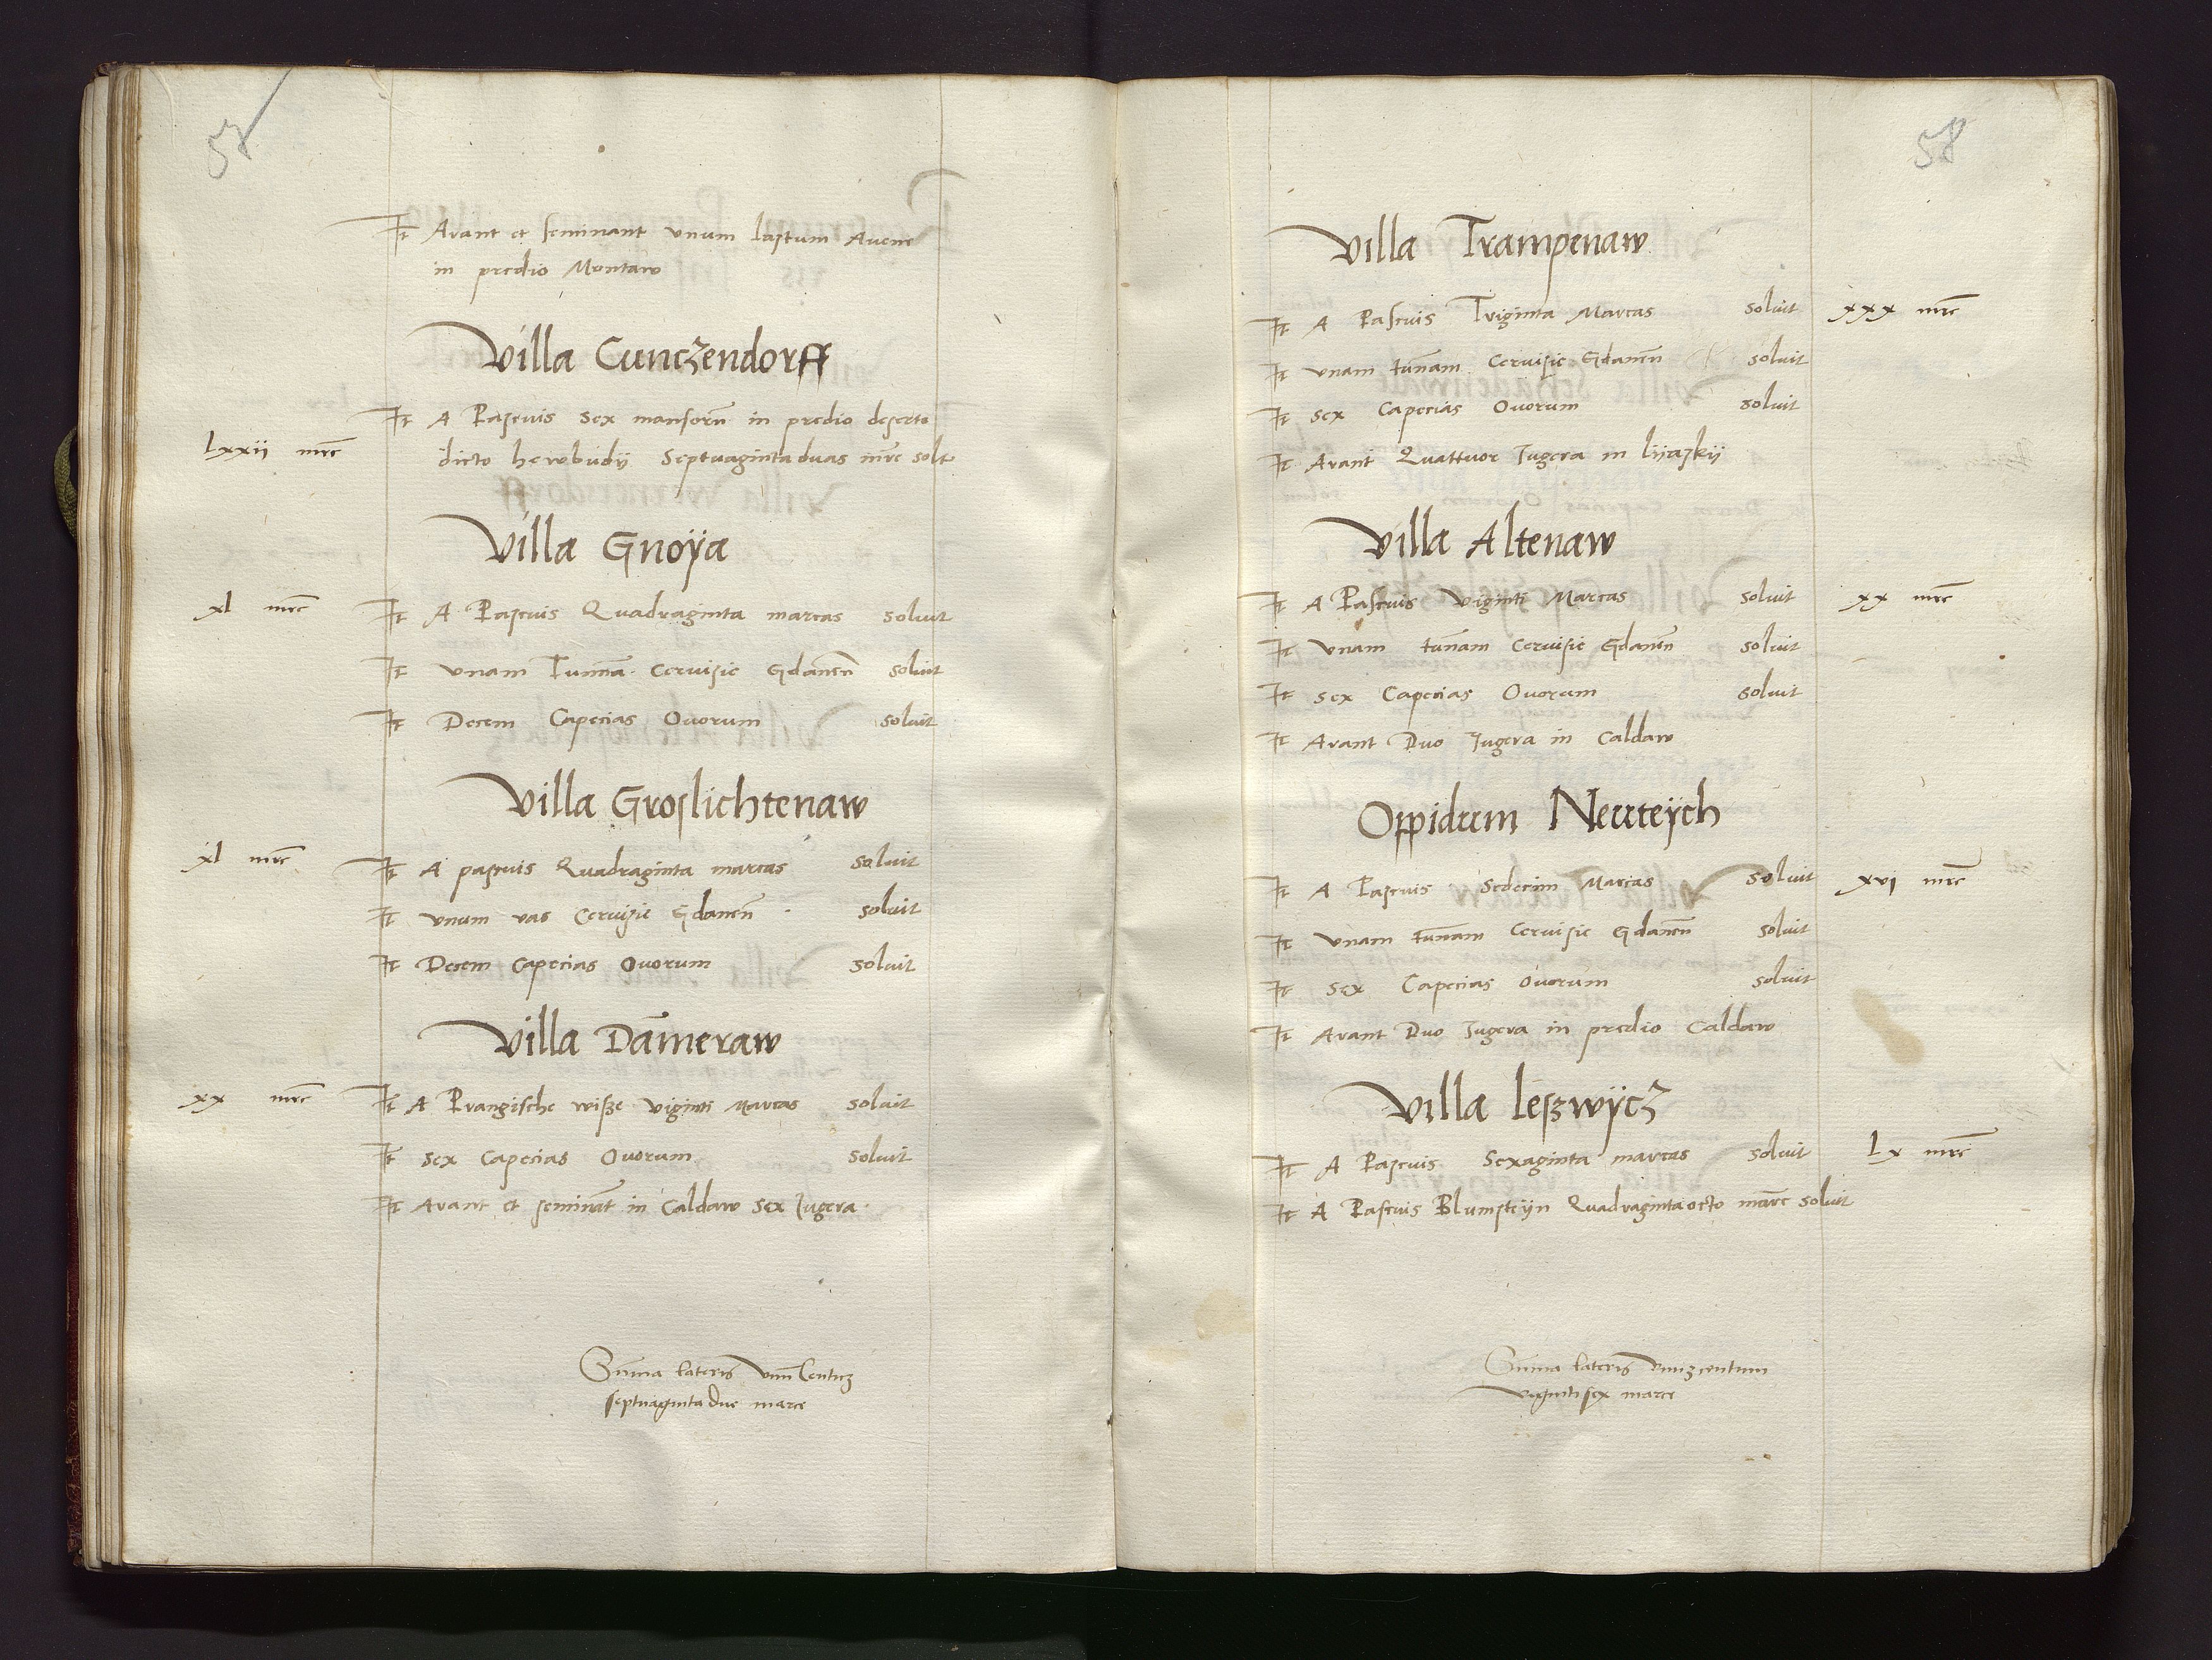 57
It Arant et seminant vnum lastum Auene
in predio Montaw
Villa Cunczendorff
It A Pascuis Sex mansorū in predio deserto
lxxij mrc dicto herwbudÿ Septuagintaduas mrc solt
Villa Gnoÿa
xl mrc It A Pascuis Quadraginta marcas soluit
It vnam Tunnā Ceruisie Gdanēn soluit
It Decem Capecias Ouorum soluit
Villa Groslichtenaw
xl mrc It A pascuis Quadraginta marcas soluit
It vnum vas Ceruisie Gdanēn soluit
It Decem Capecias Ouorum soluit
Villa Dāmeraw
xx mrc It A Prangische wisze viginti Marcas soluit
It Sex Capecias Ouorum soluit
It Arant et semināt in Caldaw Sex Jugera
Sūma lateris Vnū Centuz
septuaginta due marce
58
Villa Trampenaw
It A Pascuis Triginta Marcas soluit xxx mrc
It vnam tūnam Ceruisie Gdanēn soluit
It Sex Capecias Ouorum soluit
It Arant Quattuor Jugera in lÿaskÿ
Villa Altenaw
It A Pascuis viginti Marcas soluit xx mrc
It vnam tūnam Ceruisie Gdanēn soluit
It Sex Capecias Ouorum soluit
It Arant Duo Jugera in Caldaw
Oppidum Neuteÿch
It A Pascuis Sedecim Marcas soluit xvj mrc
It vnam tūnam Ceruisie Gdanēn soluit
It Sex Capecias Ouorum soluit
It Arant Duo Jugera in predio Caldaw
Villa leszwÿcz
It A Pascuis Sexaginta marcas soluit lx mrc
It A Pascuis Blumsteÿn Quadragintaocto marc soluit
Sūma lateris Vnuz centum
viginti sex marce